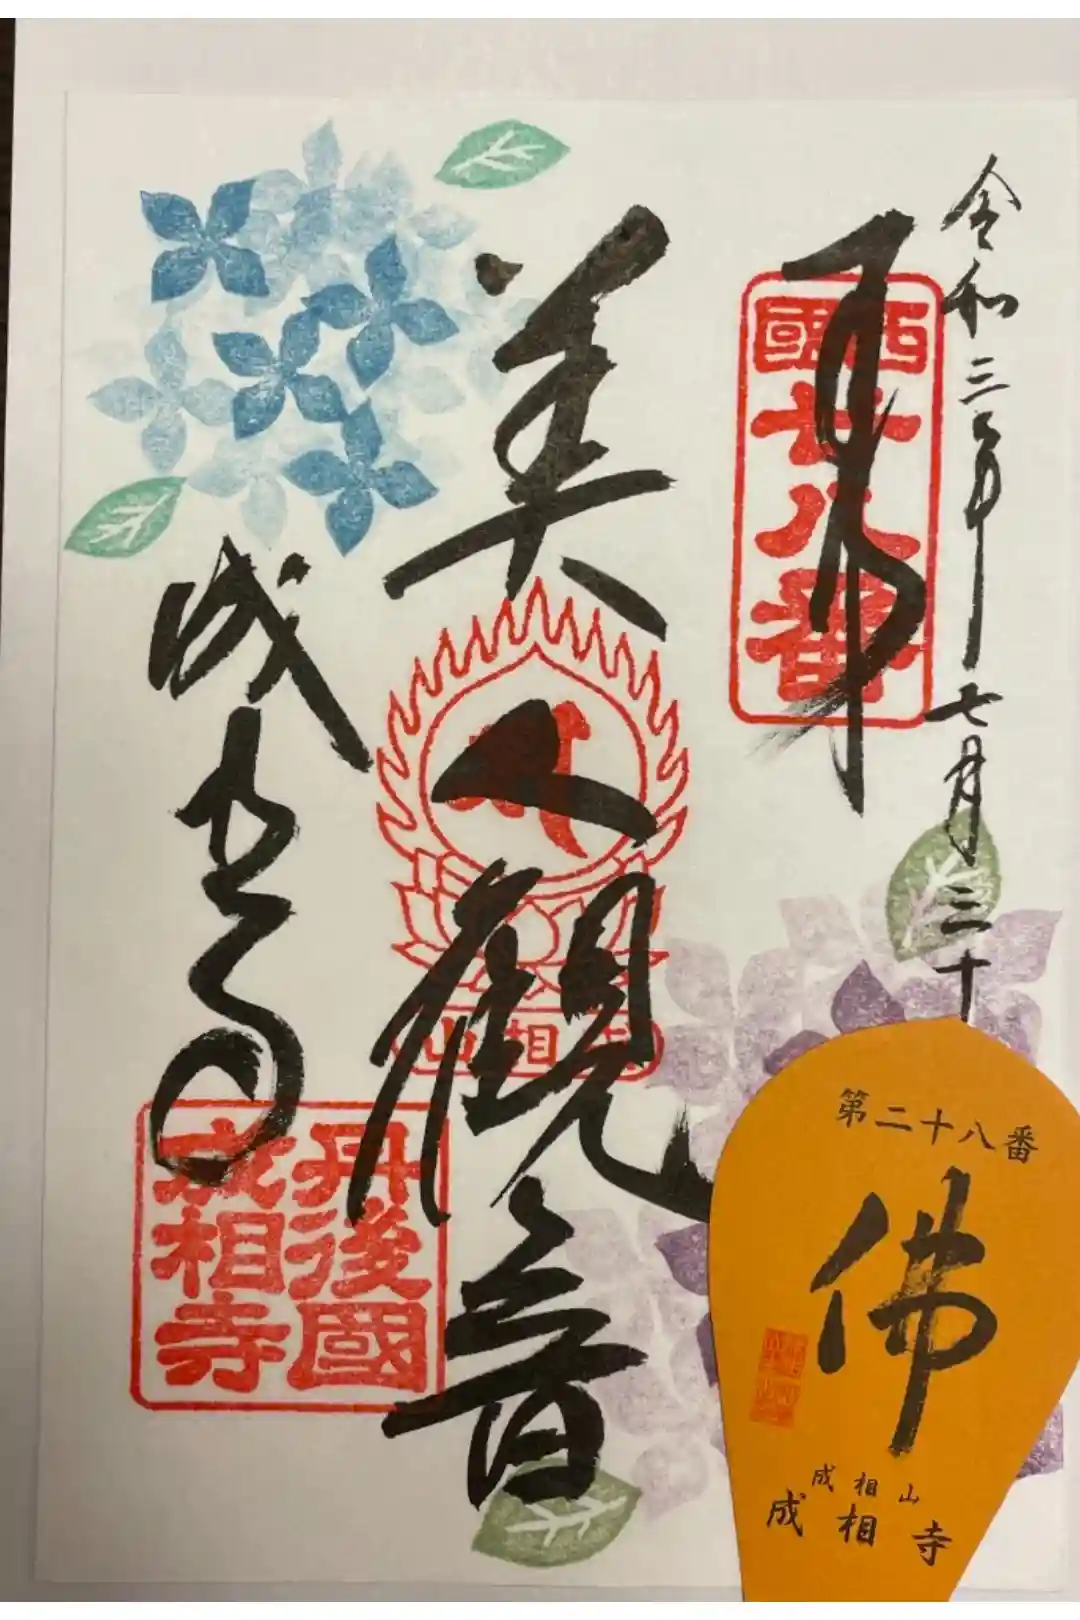 令和三年七月三十
奉
西國
廿八番
美人観音
成相山
成相寺
丹後國
成相寺
第二十八番
佛
成相山
成相寺